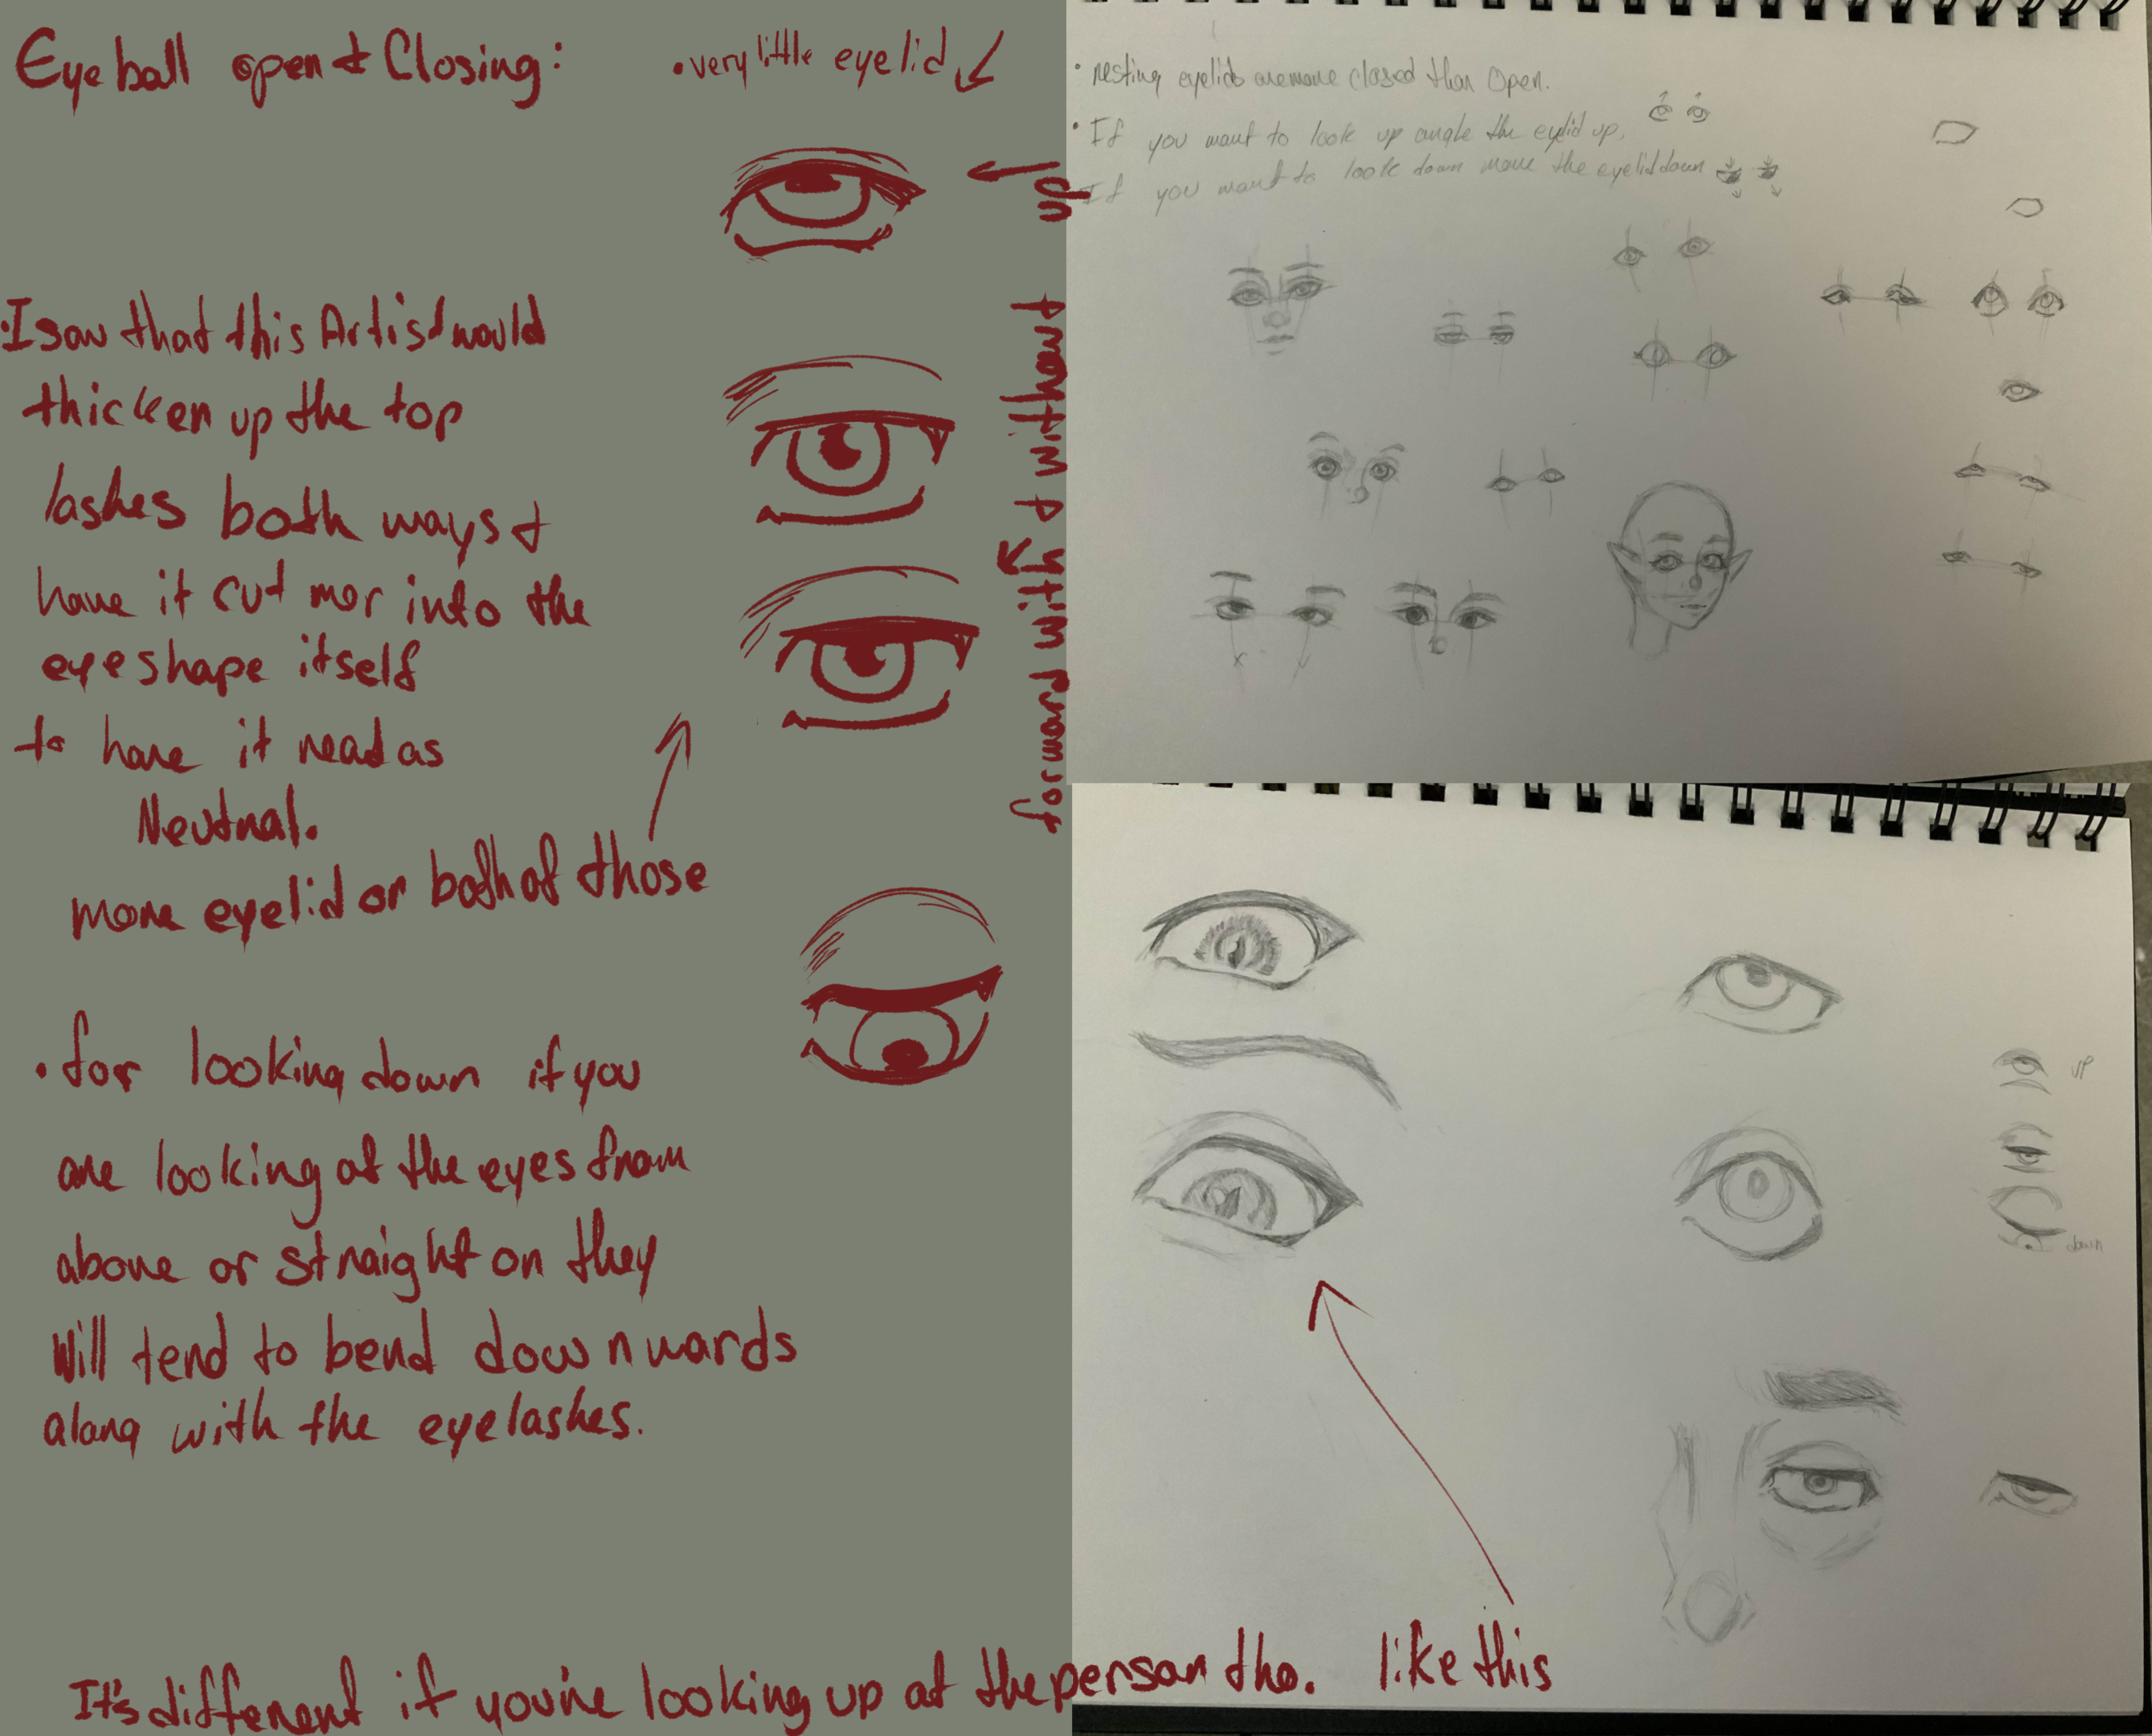 Eyeball open & Closing:
• very little eyelid
up
• I saw that this Artist would
thicken up the top
lashes both ways &
have it cut mor into the
eye shape itself
to have it read as
Neutral.
more eyelid or both of those
forward with & without
• for looking down if you
are looking at the eyes from
above or straight on they
will tend to bend downwards
along with the eyelashes.
It's different if you're looking up at the person tho. like this
• resting eyelids are more closed than Open.
• If you want to look up angle the eylid up,
If you want to look down move the eyelid down
UP
down